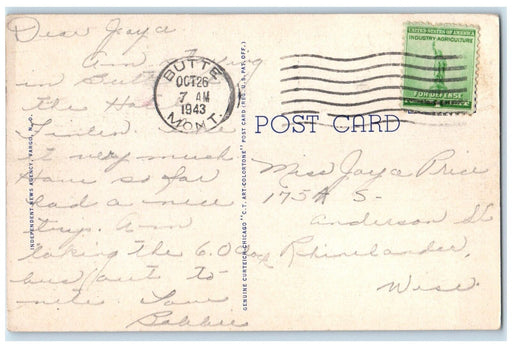 Dear Joya
Am
in Butte
the
it very much
have so far
had a nice
trip. Am
taking the 6.00
bus out to-
nite Love
Bobbie
BUTTE
OCT 26
7 AM
1943
MONT.
UNITED STATES OF AMERICA
INDUSTRY AGRICULTURE
FOR DEFENSE
POST CARD
Miss Joya Price
175A S-
Anderson St
Rhinelander,
Wisc.
INDEPENDENT NEWS AGENCY, FARGO, N.D.
GENUINE CURTEICH-CHICAGO "C.T. ART-COLORTONE" POST CARD (REG. U.S. PAT. OFF.)